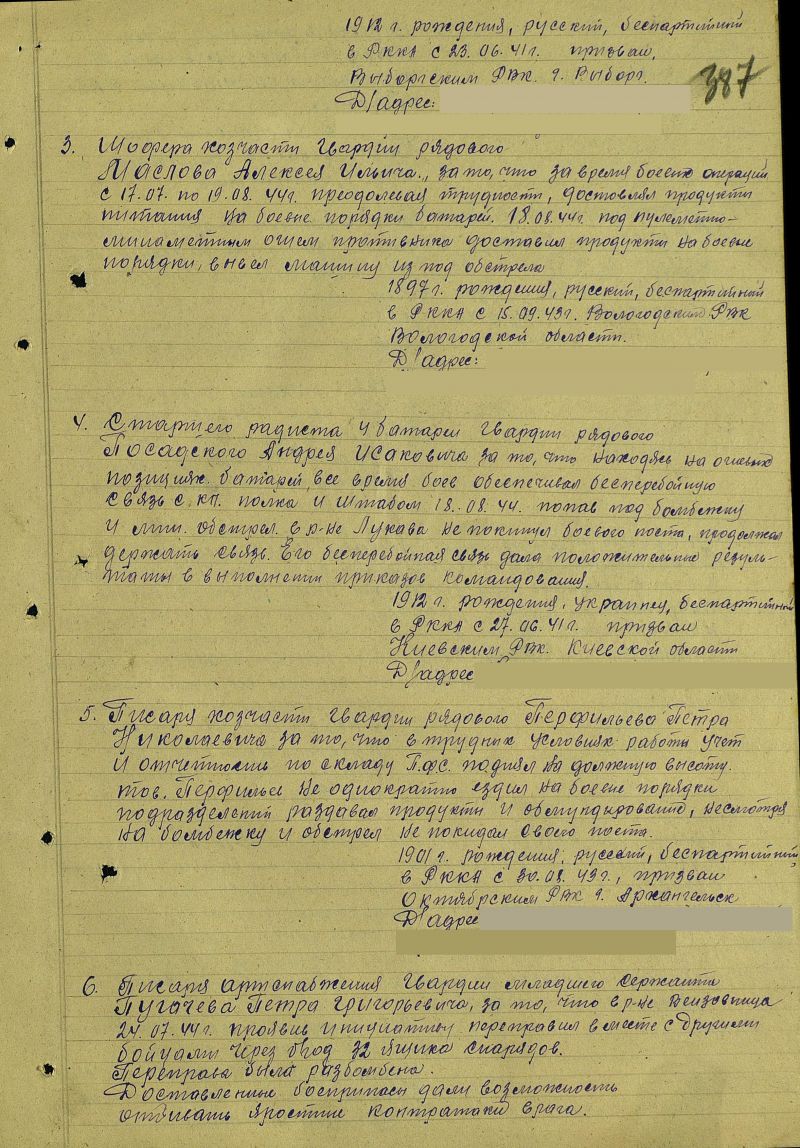 1912 г. рождения, русский, беспартийный
в РККА с 23.06.41г. призван,
Выборгским РВК г. Выборг.
Д/адрес:
387
3. Шофера хозчасти гвардии рядового
Маслова Алексея Ильича, за то, что за время боевых операций
с 17.07. по 19.08.44г. преодолевая трудности, доставлял продукты
питания на боевые порядки батарей. 18.08.44г. под пулеметно-
минаметным огнем противника доставил продукты на боевые
порядки, вывел машину из под обстрела
1897г. рождения, русский, беспартийный
в РККА с 15.09.43г. Вологодским РВК
Вологодской области.
Д/адрес:
4. Старшего радиста 4 батареи гвардии рядового
Посадского Андрея Исаковича за то, что находясь на огневых
позициях батарей, все время боев обеспечивал бесперебойную
связь с КП. полка и штабом 18.08.44. попав под бомбежку
и мин. обстрел в р-не Лукава не покинул боевого поста, продолжал
держать связь. Его бесперебойная связь дала положительные резуль-
таты в выполнении приказов командования.
1912 г. рождения, украинец, беспартийный
в РККА с 27.06.41г. призван
Киевским РВК. Киевской области
Д/адрес
5. Писаря хозчасти гвардии рядового Перфильева Петра
Николаевича за то, что в трудных условиях работы учет
и отчетность по складу П.Ф.С. поднял на должную высоту.
тов. Перфильев не однократно ездил на боевые порядки
подразделений раздавал продукты и обмундирование, несмотря
на бомбежку и обстрел не покидал своего поста.
1901г. рождения, русский, беспартийный,
в РККА с 30.08.43г., призван
Октябрским РВК г. Архангельск
Д/адрес
6. Писаря артснабжения гвардии младшего сержанта
Пугачева Петра Григорьевича, за то, что в р-не
24.07.44г. проявив инициативу переправил вместе с другими
бойцами через 32 ящика снарядов.
Переправа была разбомбена.
Доставленные боеприпасы дали возможность
отбивать яростные контратаки врага.